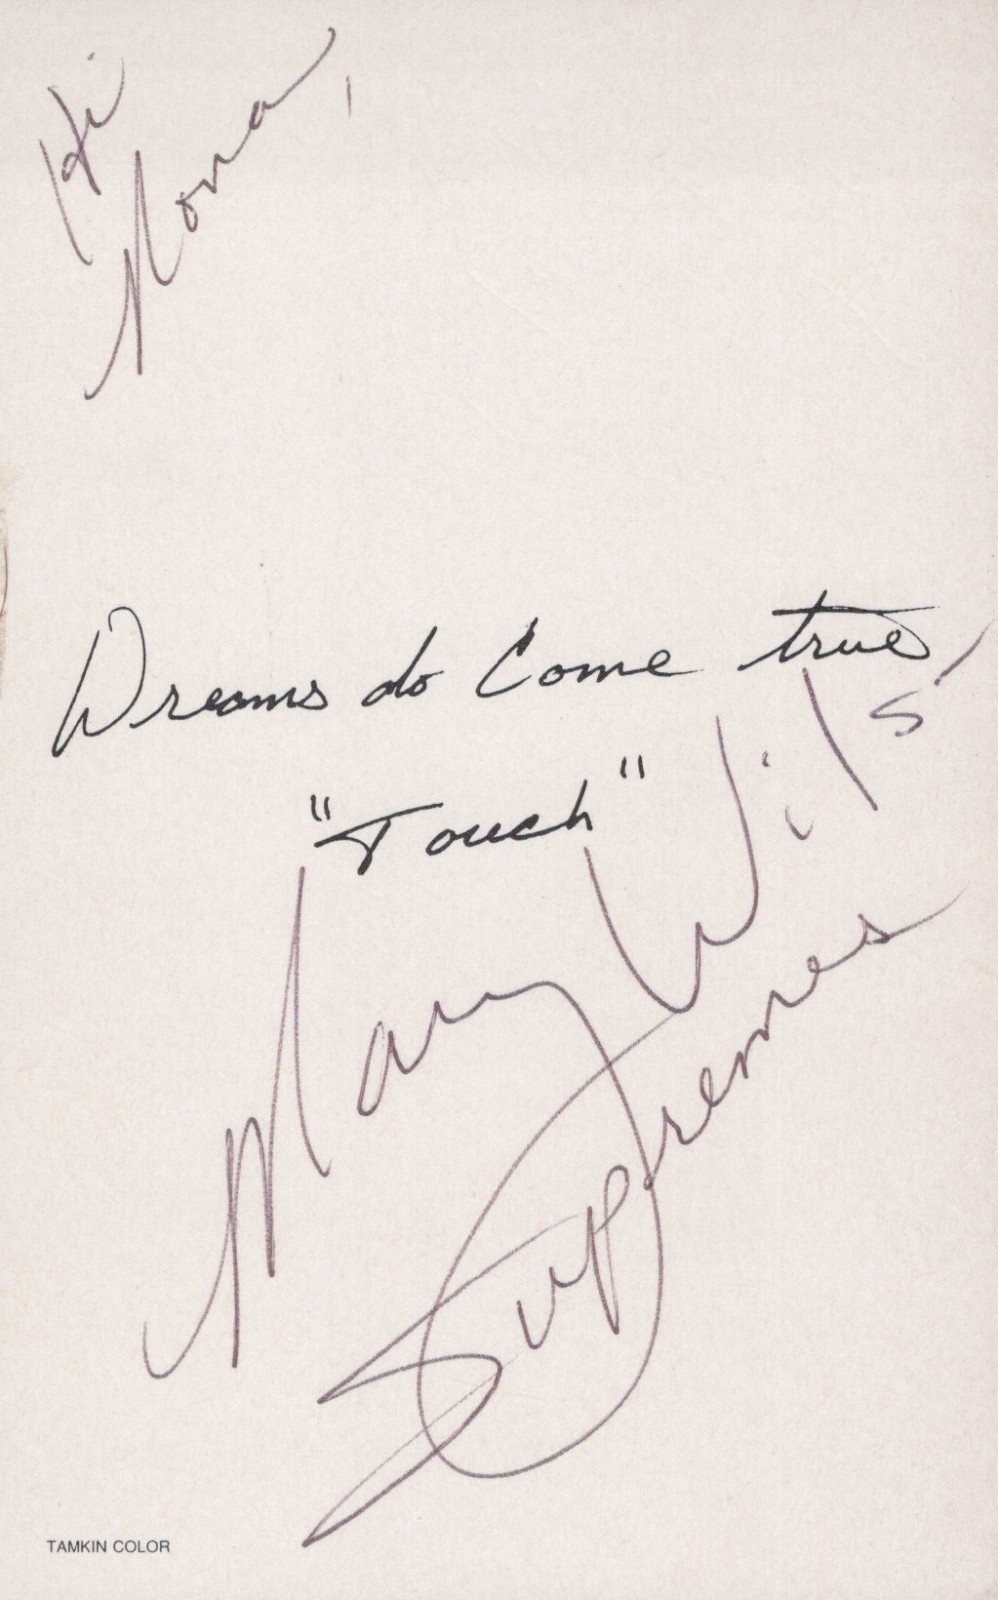 Hi
Nona,
Dreams do Come true,
"Touch"
Mary Wilson
Supremes
TAMKIN COLOR